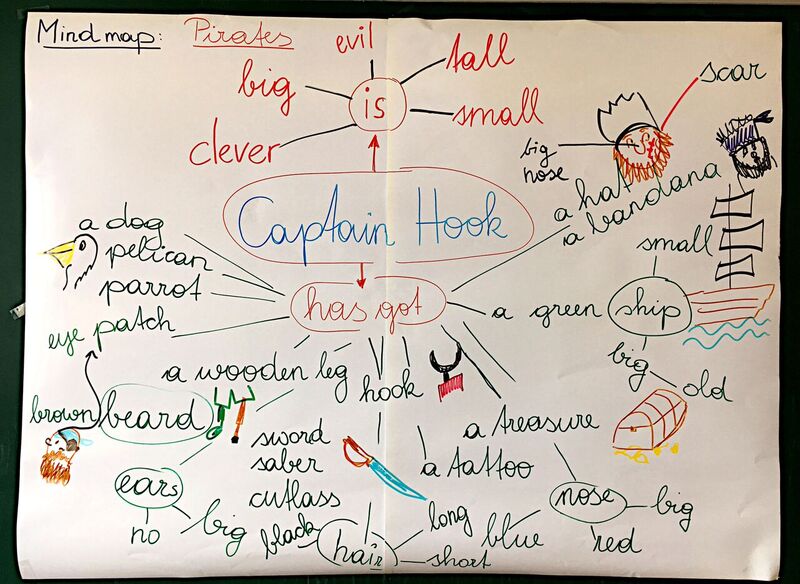 Mind map: Pirates
evil
tall
big
is
small
clever
scar
big
nose
Captain Hook
a hat
a bandana
a dog
pelican
parrot
eye patch
has got
small
a green ship
big
old
a wooden leg
hook
brown beard
a treasure
sword
saber
cutlass
a tattoo
ears
no
big
nose
big
red
blue
black
hair
long
short